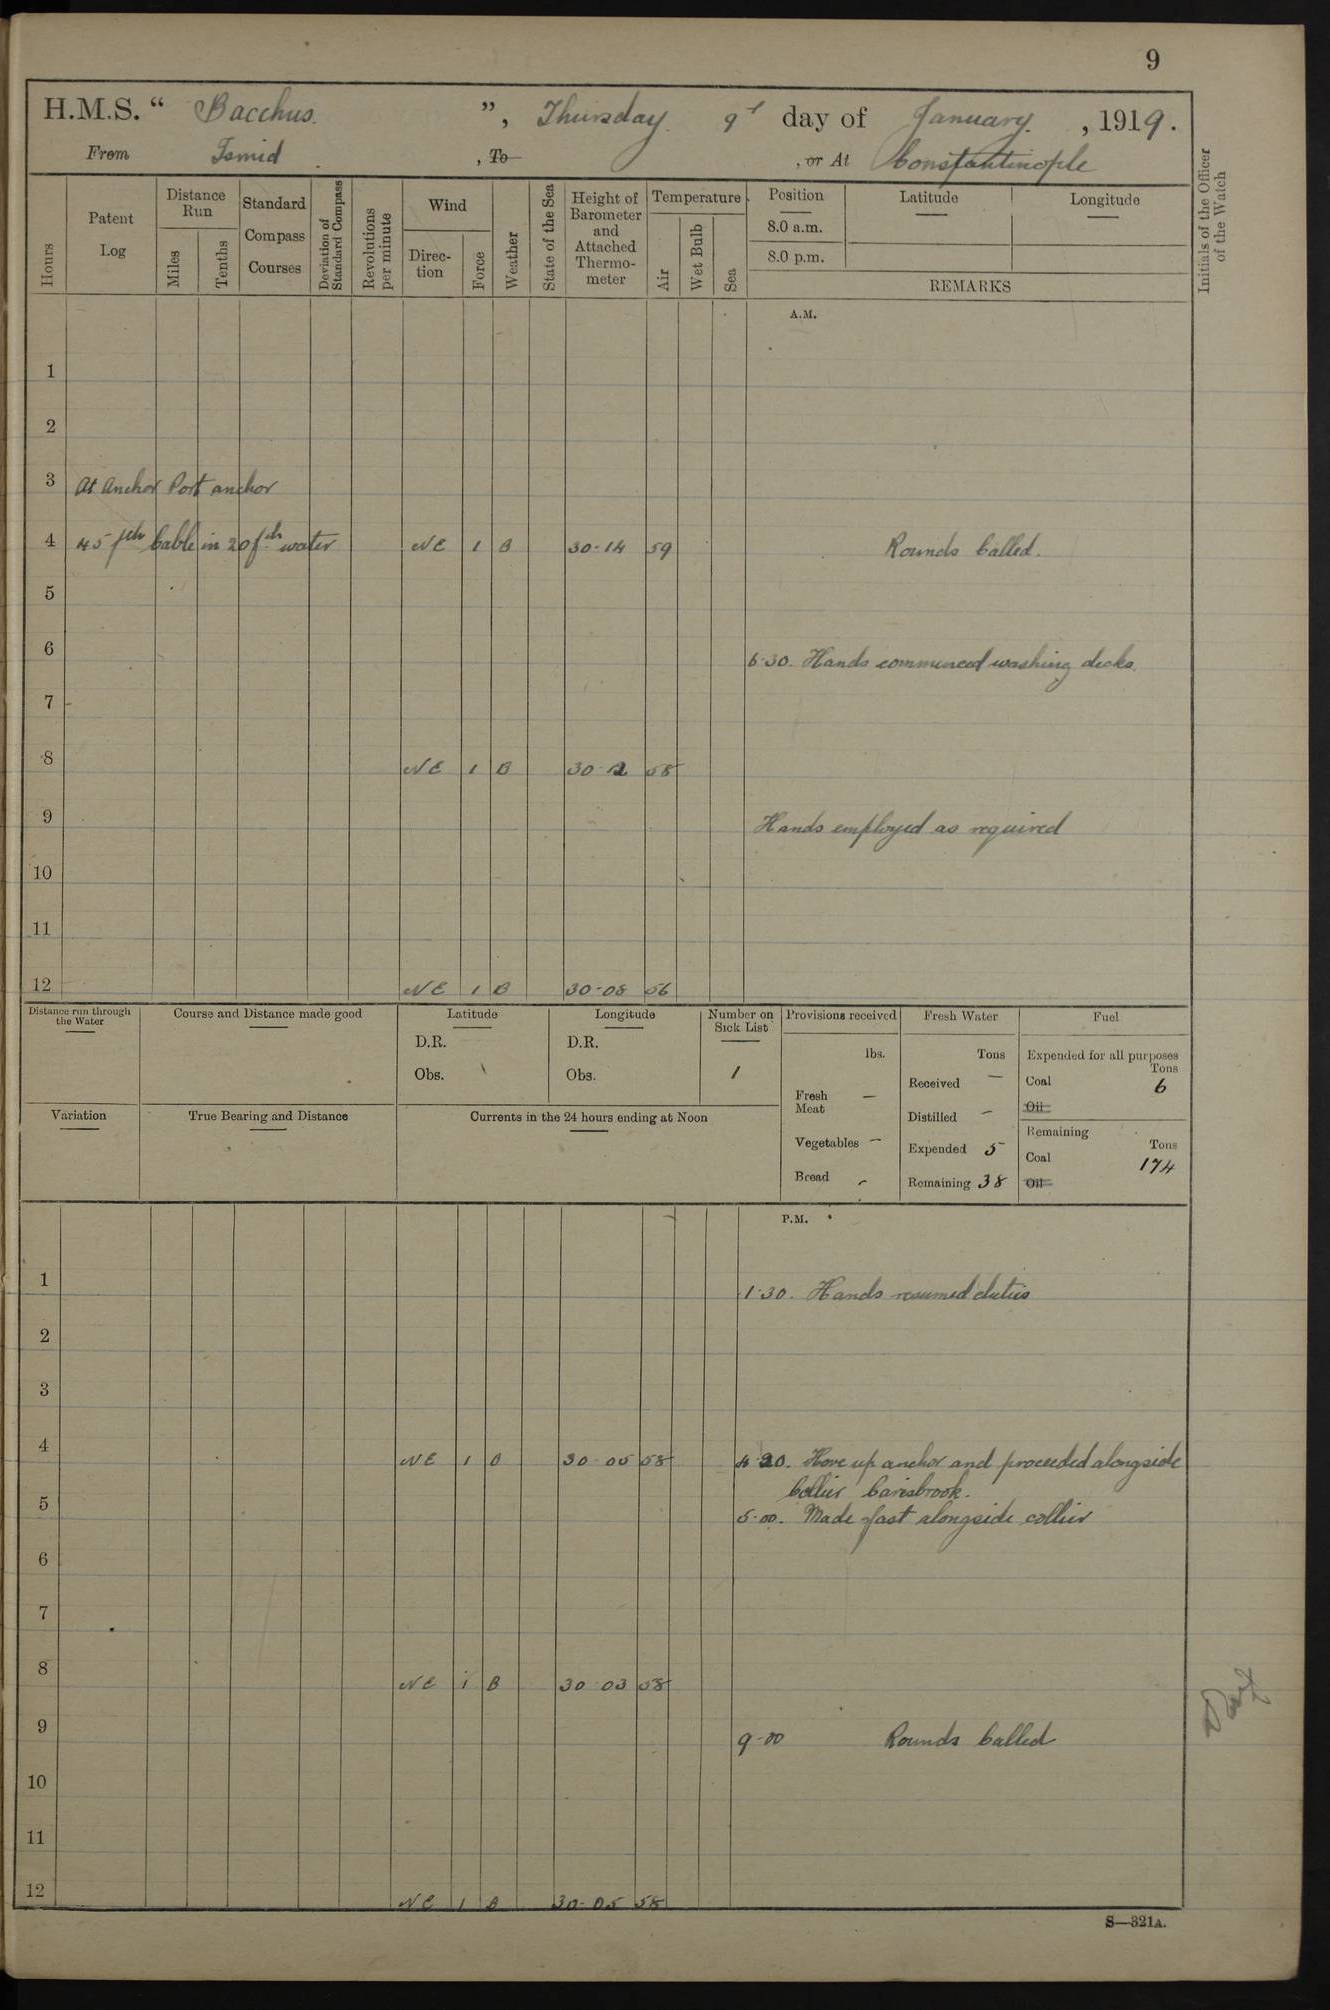 9
H.M.S. “ Bacchus. ”, Thursday. 9 day of January. , 1919.
From Ismid , To , or At Constantinople
Hours
Patent Log
Distance Run
Miles
Tenths
Standard Compass Courses
Deviation of Standard Compass
Revolutions per minute
Wind
Direction
Force
Weather
State of the Sea
Height of Barometer and Attached Thermometer
Temperature
Air
Wet Bulb
Sea
Position
8.0 a.m.
8.0 p.m.
Latitude
Longitude
REMARKS
Initials of the Officer of the Watch
A.M.
1
2
3 At Anchor Port anchor
4 45 fth Cable in 20 fth water NE 1 B 30-14 59 Rounds Called.
5
6 6-30. Hands commenced washing decks.
7
8 NE 1 B 30 58
9 Hands employed as required
10
11
12 NE 1 B 30-08 56
Distance run through the Water
Course and Distance made good
Latitude
D.R.
Obs.
Longitude
D.R.
Obs.
Number on Sick List
1
Provisions received
lbs.
Fresh Meat —
Vegetables —
Bread -
Fresh Water
Tons
Received —
Distilled —
Expended 5
Remaining 38
Fuel
Expended for all purposes
Tons
Coal 6
Oil
Remaining
Tons
Coal 174
Oil
Variation
True Bearing and Distance
Currents in the 24 hours ending at Noon
P.M.
1 1-30. Hands resumed duties
2
3
4 NE 1 B 30 05 58 4 20. Hove up anchor and proceeded alongside
Collier Carisbrook.
5 5-00. Made fast alongside collier
6
7
8 NE 1 B 30 03 58
9 9-00 Rounds Called
10
11
12 NE 1 B 30-05 58
S—321A.